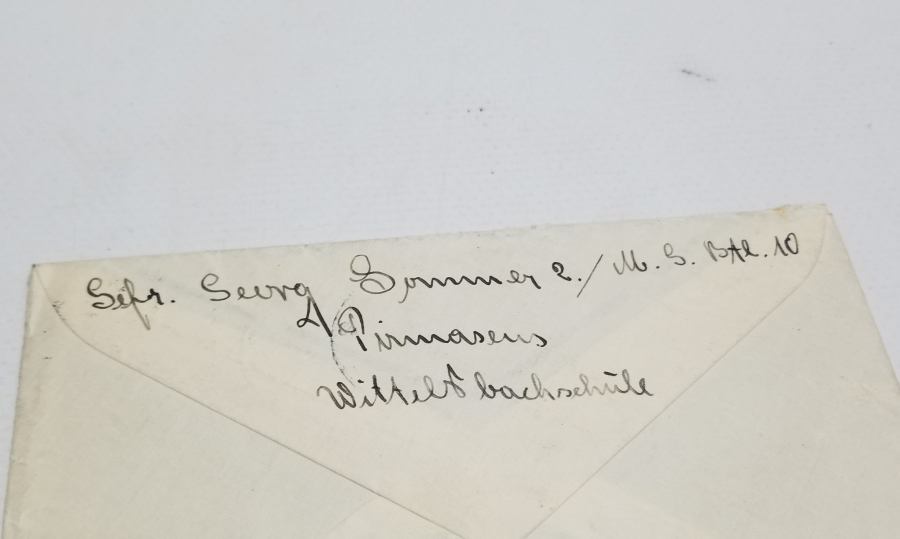 Gefr. Georg Sommer 2./M.G. Btl. 10
Pirmasens
Wittelsbachschule